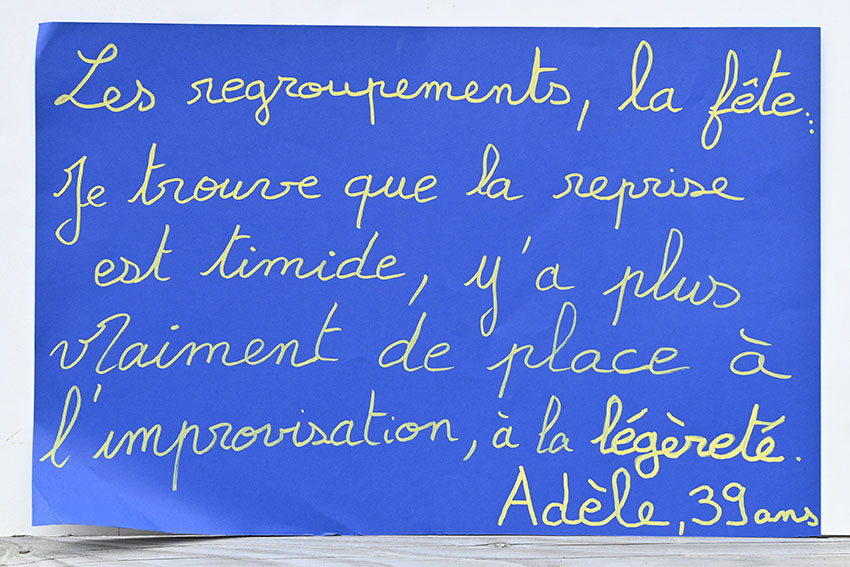 Les regroupements, la fête...
Je trouve que la reprise
est timide, y'a plus
vraiment de place à
l'improvisation, à la légèreté.
Adèle, 39 ans